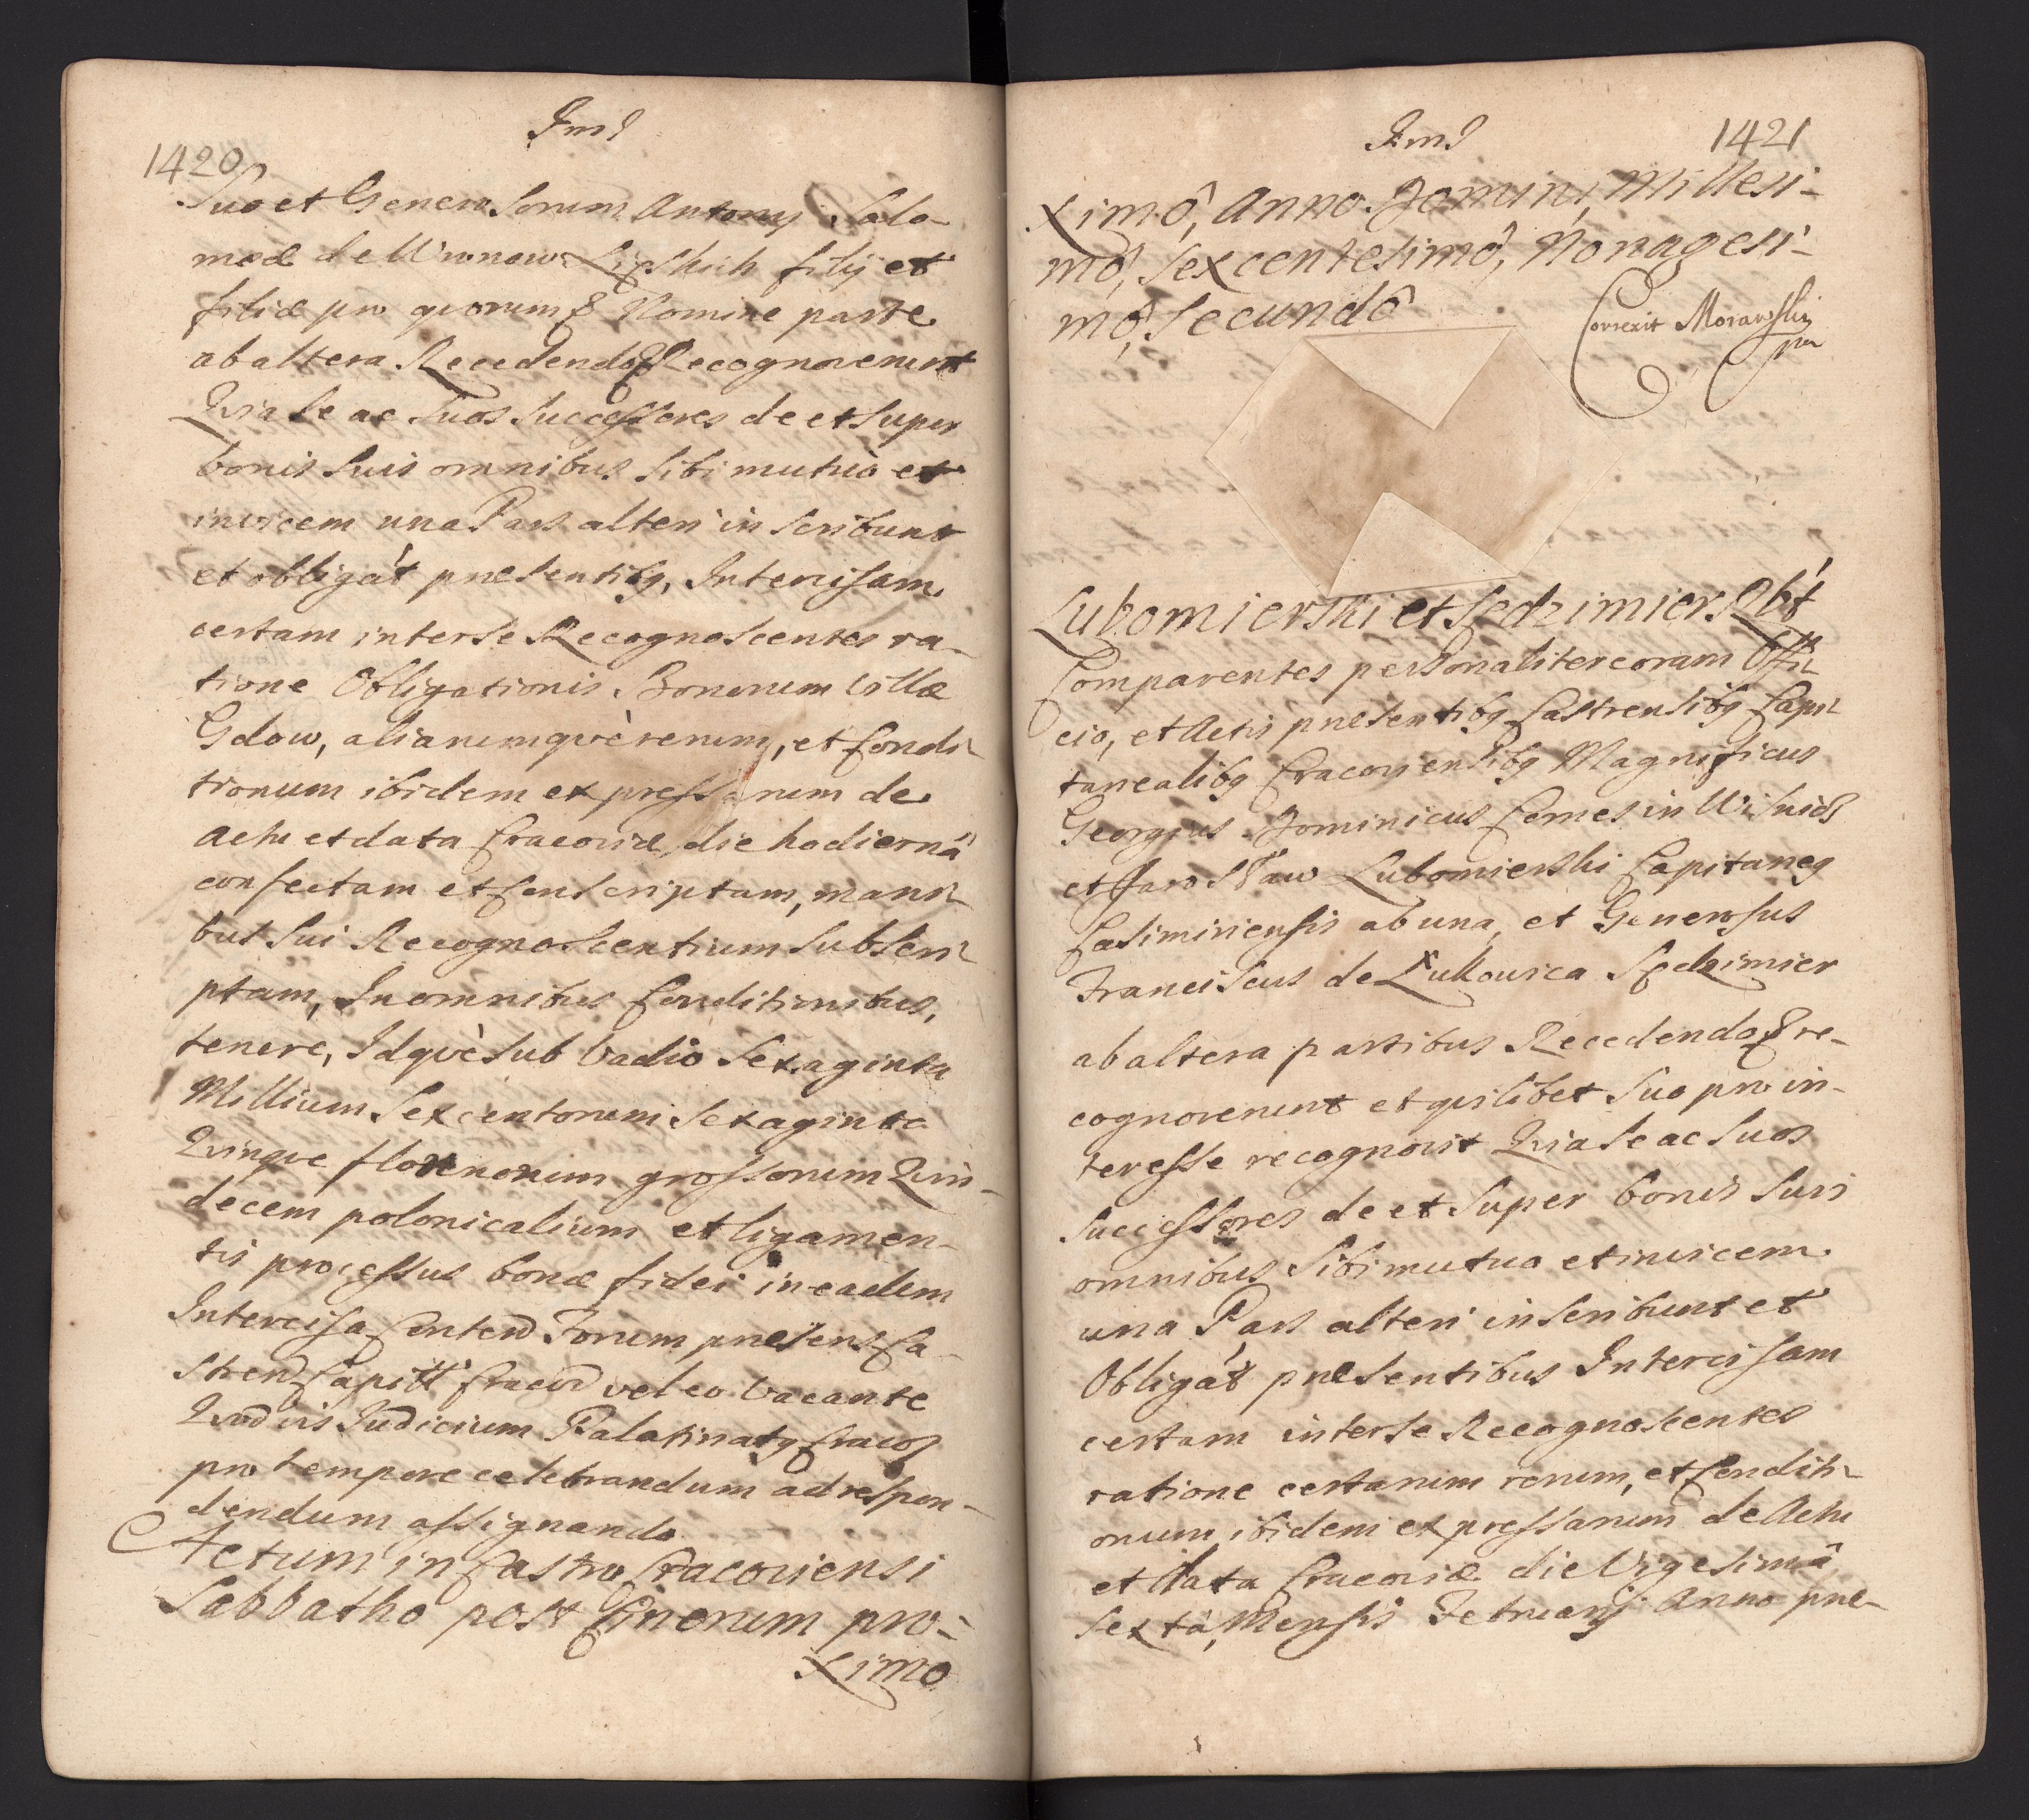 1420
Suo et Generosorum Antonij Salo-
meæ de Wronow Lipskich filij et
filiæ pro quorum Nomine parte
ab altera Recedendo Recognoverunt
Quia se ac suos Successores de et super
bonis suis omnibus sibi mutuò et
invicem una Pars alteri inscribunt
et obligát præsentibq, Intercisam
certam inter se Recognoscentes ra-
tione Obligationis Bonorum Villæ
Gdow, aliarumquè rerum, et Condi-
tionum ibidem expressarum de
Actu et data Cracoviæ die hodierná
confectam et Conscriptam, mani-
bus sui Recognoscentium Subscri-
ptam, In omnibus Conditionibus,
tenere, Idquè sub Vadio Sexaginta
Millium Sexcentorum Sexaginta
Quinque florenorum grossorum Quin-
decem polonicalium et ligamen-
tis processus bonæ fidei in eadem
Intercisa Conten Forum præsens Ca-
stren Capitt Cracov vel eo Vacante
Quodvis Judicium Palatinatq Cracov
pro tempore celebrandum ad respon-
dendum assignando
Actum in Castro Cracoviensi
Sabbatho post Cinerum pro-
ximo
1421
ximô, Anno Domini Millesi-
mô, Sexcentesimô, Nonagesi-
mô, Secundô
Correxit Morawski
mp
Lubomierski et Sędzimier Obt
Comparentes personaliter coram Offi-
cio, et Actis præsentibq Castrensibq Capi-
tanealibq Cracoviensibq Magnificus
Georgius Dominicus Comes in Wisnicz
et Jarosław Lubomierski Capitaneq
Casimiriensis ab una, et Generosus
Franciscus de Łukowica Sędzimier
ab altera partibus Recedendo re-
cognoverunt et quilibet suo pro in-
teresse recognovit Quia se ac suos
Successores de et super bonis suis
omnibus sibi mutuo et invicem
una Pars alteri inscribunt et
Obligát præsentibus Intercissam
certam inter se Recognoscentes
ratione certarum rerum, et Conditi-
onum ibidem expressarum de Actu
et Data Cracoviæ die Vigesimâ
Sextâ, Mensis Februarij Anno præ-